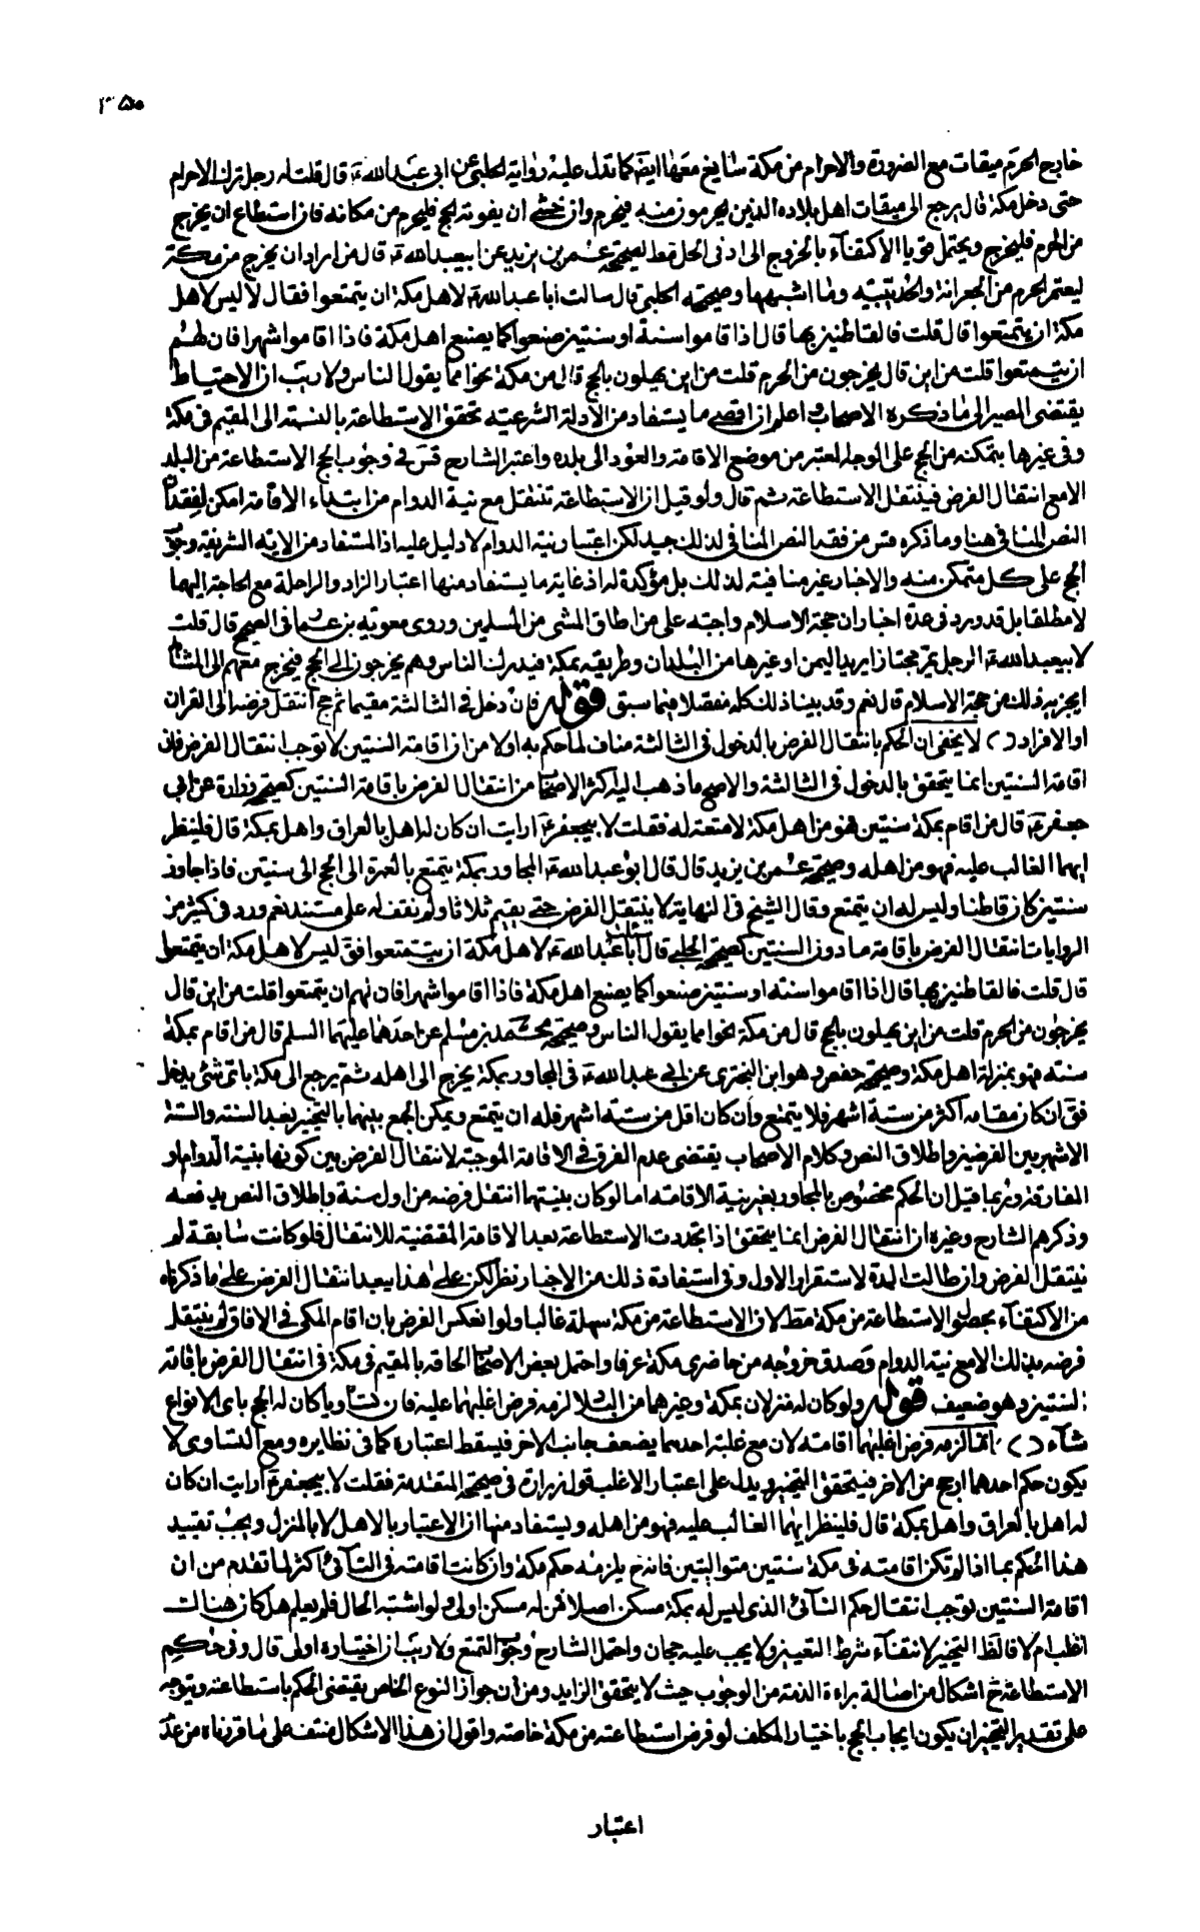 ٣٥٠
خارج الحرم ميقات مع الضرورة والاحرام من مكة سايغ معها ايضا كما تدل عليه رواية الحلبي عن ابي عبد الله ع قال قلت له رجل ترك الاحرام
حتى دخل مكة قال يرجع الى ميقات اهل بلاده الذين يحرمون منه فيحرم وان خشى ان يفوته الحج فليحرم من مكانه فان استطاع ان يخرج
من الحرم فليخرج ويحتمل قويا الاكتفاء بالخروج الى ادنى الحل مط لصحيحة عمر بن يزيد عن ابيعبد الله ع قال من اراد ان يخرج من مكة
ليعتمر احرم من الجعرانة والحديبيه وما اشبهها وصحيحة الحلبي قال سالت ابا عبد الله ع لاهل مكة ان يتمتعوا فقال لا ليس لاهل
مكة ان يتمتعوا قال قلت فالقاطنين بها قال اذا قاموا سنة او سنتين صنعوا كما يصنع اهل مكة فاذا اقاموا شهرا فان لهم
ان يتمتعوا قلت من اين قال يخرجون من الحرم قلت من اين يهلون بالحج قال من مكة نحوا مما يقول الناس ولا ريب ان الاحتياط
يقتضى المصير الى ما ذكره الاصحاب واعلم ان اقصى ما يستفاد من الادلة الشرعية تحقق الاستطاعة بالنسبة الى المقيم فى مكة
وفى غيرها بتمكنه من الحج على الوجه المعتبر من موضع الاقامة والعود الى بلده واعتبر الشارح قس فى وجوب الحج الاستطاعة من البلد
الا مع انتقال الفرض فينتقل الاستطاعة ثم قال ولو قيل ان الاستطاعة تنتقل مع نية الدوام من ابتداء الاقامة امكن لفقد
النص المنافى هنا وما ذكره قس من فقد النص المنافى لذلك جيد لكن اعتبار نية الدوام لا دليل عليه اذ المستفاد من الاية الشريفة وجوب
الحج على كل متمكن منه والاخبار غير منافية لذلك بل مؤكدة له اذ غاية ما يستفاد منها اعتبار الزاد والراحلة مع الحاجة اليهما
لا مطلقا بل قد ورد فى عدة اخبار ان حجة الاسلام واجبه على من اطاق المشى من المسلمين وروى معوية بن عمار فى الصحيح قال قلت
لابيعبد الله ع الرجل يمر مجتازا يريد اليمن او غيرها من البلدان وطريقه بمكة فيدرك الناس وهم يخرجون الى الحج فيخرج معهم الى المشاهد
ايجزيه ذلك من حجة الاسلام قال نعم وقد بينا ذلك كله مفصلا فيما سبق قوله فان دخل فى الثالثة مقيما ثم حج انتقل فرضه الى القران
او الافراد ( ) لا يخفى ان الحكم بانتقال الفرض بالدخول فى الثالثة مناف لما حكم به اولا من ان اقامة السنتين لا توجب انتقال الفرض فان
اقامة السنتين انما يتحقق بالدخول فى الثالثة والاصح ما ذهب اليه اكثر الاصحاب من انتقال الفرض باقامة السنتين كصحيحة زرارة عن ابي
جعفر ع قال من اقام بمكة سنتين فهو من اهل مكة لا متعة له فقلت لابيجعفر ع ارايت ان كان له اهل بالعراق واهل بمكة قال فلينظر
ايهما الغالب عليه فهو من اهله وصحيحة عمر بن يزيد قال قال ابو عبد الله ع المجاور بمكة يتمتع بالعمرة الى الحج الى سنتين فاذا جاوز
سنتين كان قاطنا وليس له ان يتمتع وقال الشيخ فى النهاية لا ينتقل الفرض حتى يقيم ثلاثا ولم نقف له على مستند نعم ورد فى كثير من
الروايات انتقال الفرض باقامة ما دون السنتين كصحيحة الحلبي قال سالت ابا عبد الله ع لاهل مكة ان يتمتعوا فق ليس لاهل مكة ان يتمتعوا
قال قلت فالقاطنين بها قال اذا اقاموا سنة او سنتين صنعوا كما يصنع اهل مكة فاذا اقاموا شهرا فان لهم ان يتمتعوا قلت من اين قال
يخرجون من الحرم قلت من اين يهلون بالحج قال من مكة نحوا مما يقول الناس وصحيحة محمد بن مسلم عن احدهما عليهما السلم قال من اقام بمكة
سنة فهو بمنزلة اهل مكة وصحيحة حفص وهو ابن البخترى عن ابي عبد الله ع فى المجاور بمكة يخرج الى اهله ثم يرجع الى مكة باى شئ يدخل
فق ان كان مقامه اكثر من ستة اشهر فلا يتمتع وان كان اقل من ستة اشهر فله ان يتمتع ويمكن الجمع بينهما بالتخيير بعد السنة والستة
الاشهر بين الفرضين واطلاق النص وكلام الاصحاب يقتضى عدم الفرق فى الاقامة الموجبة لانتقال الفرض بين كونها بنية الدوام او
المفارقة وربما قيل ان الحكم مخصوص بالمجاور بغير نية الاقامة اما لو كان بنيتها انتقل فرضه من اول سنة واطلاق النص يدفعه
وذكر الشارح وغيره ان انتقال الفرض انما يتحقق اذا تجددت الاستطاعة بعد الاقامة المقتضية للانتقال فلو كانت سابقة لم
ينتقل الفرض وان طالت المدة لاستقرار الاول وفى استفادة ذلك من الاخبار نظر لكن على هذا يبعد انتقال الفرض على ما ذكرناه
من الاكتفاء بحصول الاستطاعة من مكة مط لان الاستطاعة من مكة سهلة غالبا ولو انعكس الفرض بان اقام المكى فى الافاق لم ينتقل
فرضه بذلك الا مع نية الدوام وصدق خروجه من حاضرى مكة عرفا واحتمل بعض الاصحاب الحاقه بالمقيم فى مكة فى انتقال الفرض باقامة
السنتين وهو ضعيف قوله ولو كان له منزلان بمكة وغيرهما من البلاد لزمه فرض اغلبهما عليه فان تساويا كان له الحج باى الانواع
شاء ( ) انما لزمه فرض اغلبهما اقامة لان مع غلبة احدهما يضعف جانب الاخر فيسقط اعتباره كما فى نظايره ومع التساوى لا
يكون حكم احدهما ارجح من الاخر فيتحقق التخيير ويدل على اعتبار الاغلب قول زرارة فى صحيحته المتقدمة فقلت لابيجعفر ع ارايت ان كان
له اهل بالعراق واهل بمكة قال فلينظر ايهما الغالب عليه فهو من اهله ويستفاد منها ان الاعتبار بالاهل لا بالمنزل ويجب تقييد
هذا الحكم بما اذا لم تكن اقامته فى مكة سنتين متواليتين فانه ح يلزمه حكم مكة وان كانت اقامته فى النآئى اكثر لما تقدم من ان
اقامة السنتين توجب انتقال حكم النآئى الذى ليس له بمكة مسكن اصلا فمن له مسكن اولى ولو اشتبه الحال فلم يعلم هل كان هناك
اغلب ام لا فالظ التخيير لانتفاء شرط التعيين ولا يجب عليه حجان واحتمل الشارح وجوب التمتع ولا ريب ان اختياره اولى قال وفى حكم
الاستطاعة ح اشكال من اصالة براءة الذمة من الوجوب حيث لا يتحقق الزايد ومن ان جواز النوع الخاص يقتضى الحكم باستطاعته ويتوجه
على تقدير التخيير ان يكون ايجاب الحج باختيار المكلف لو فرض استطاعته من مكة خاصة واقول ان هذا الاشكال منتف على ما قررناه من عدم
اعتبار